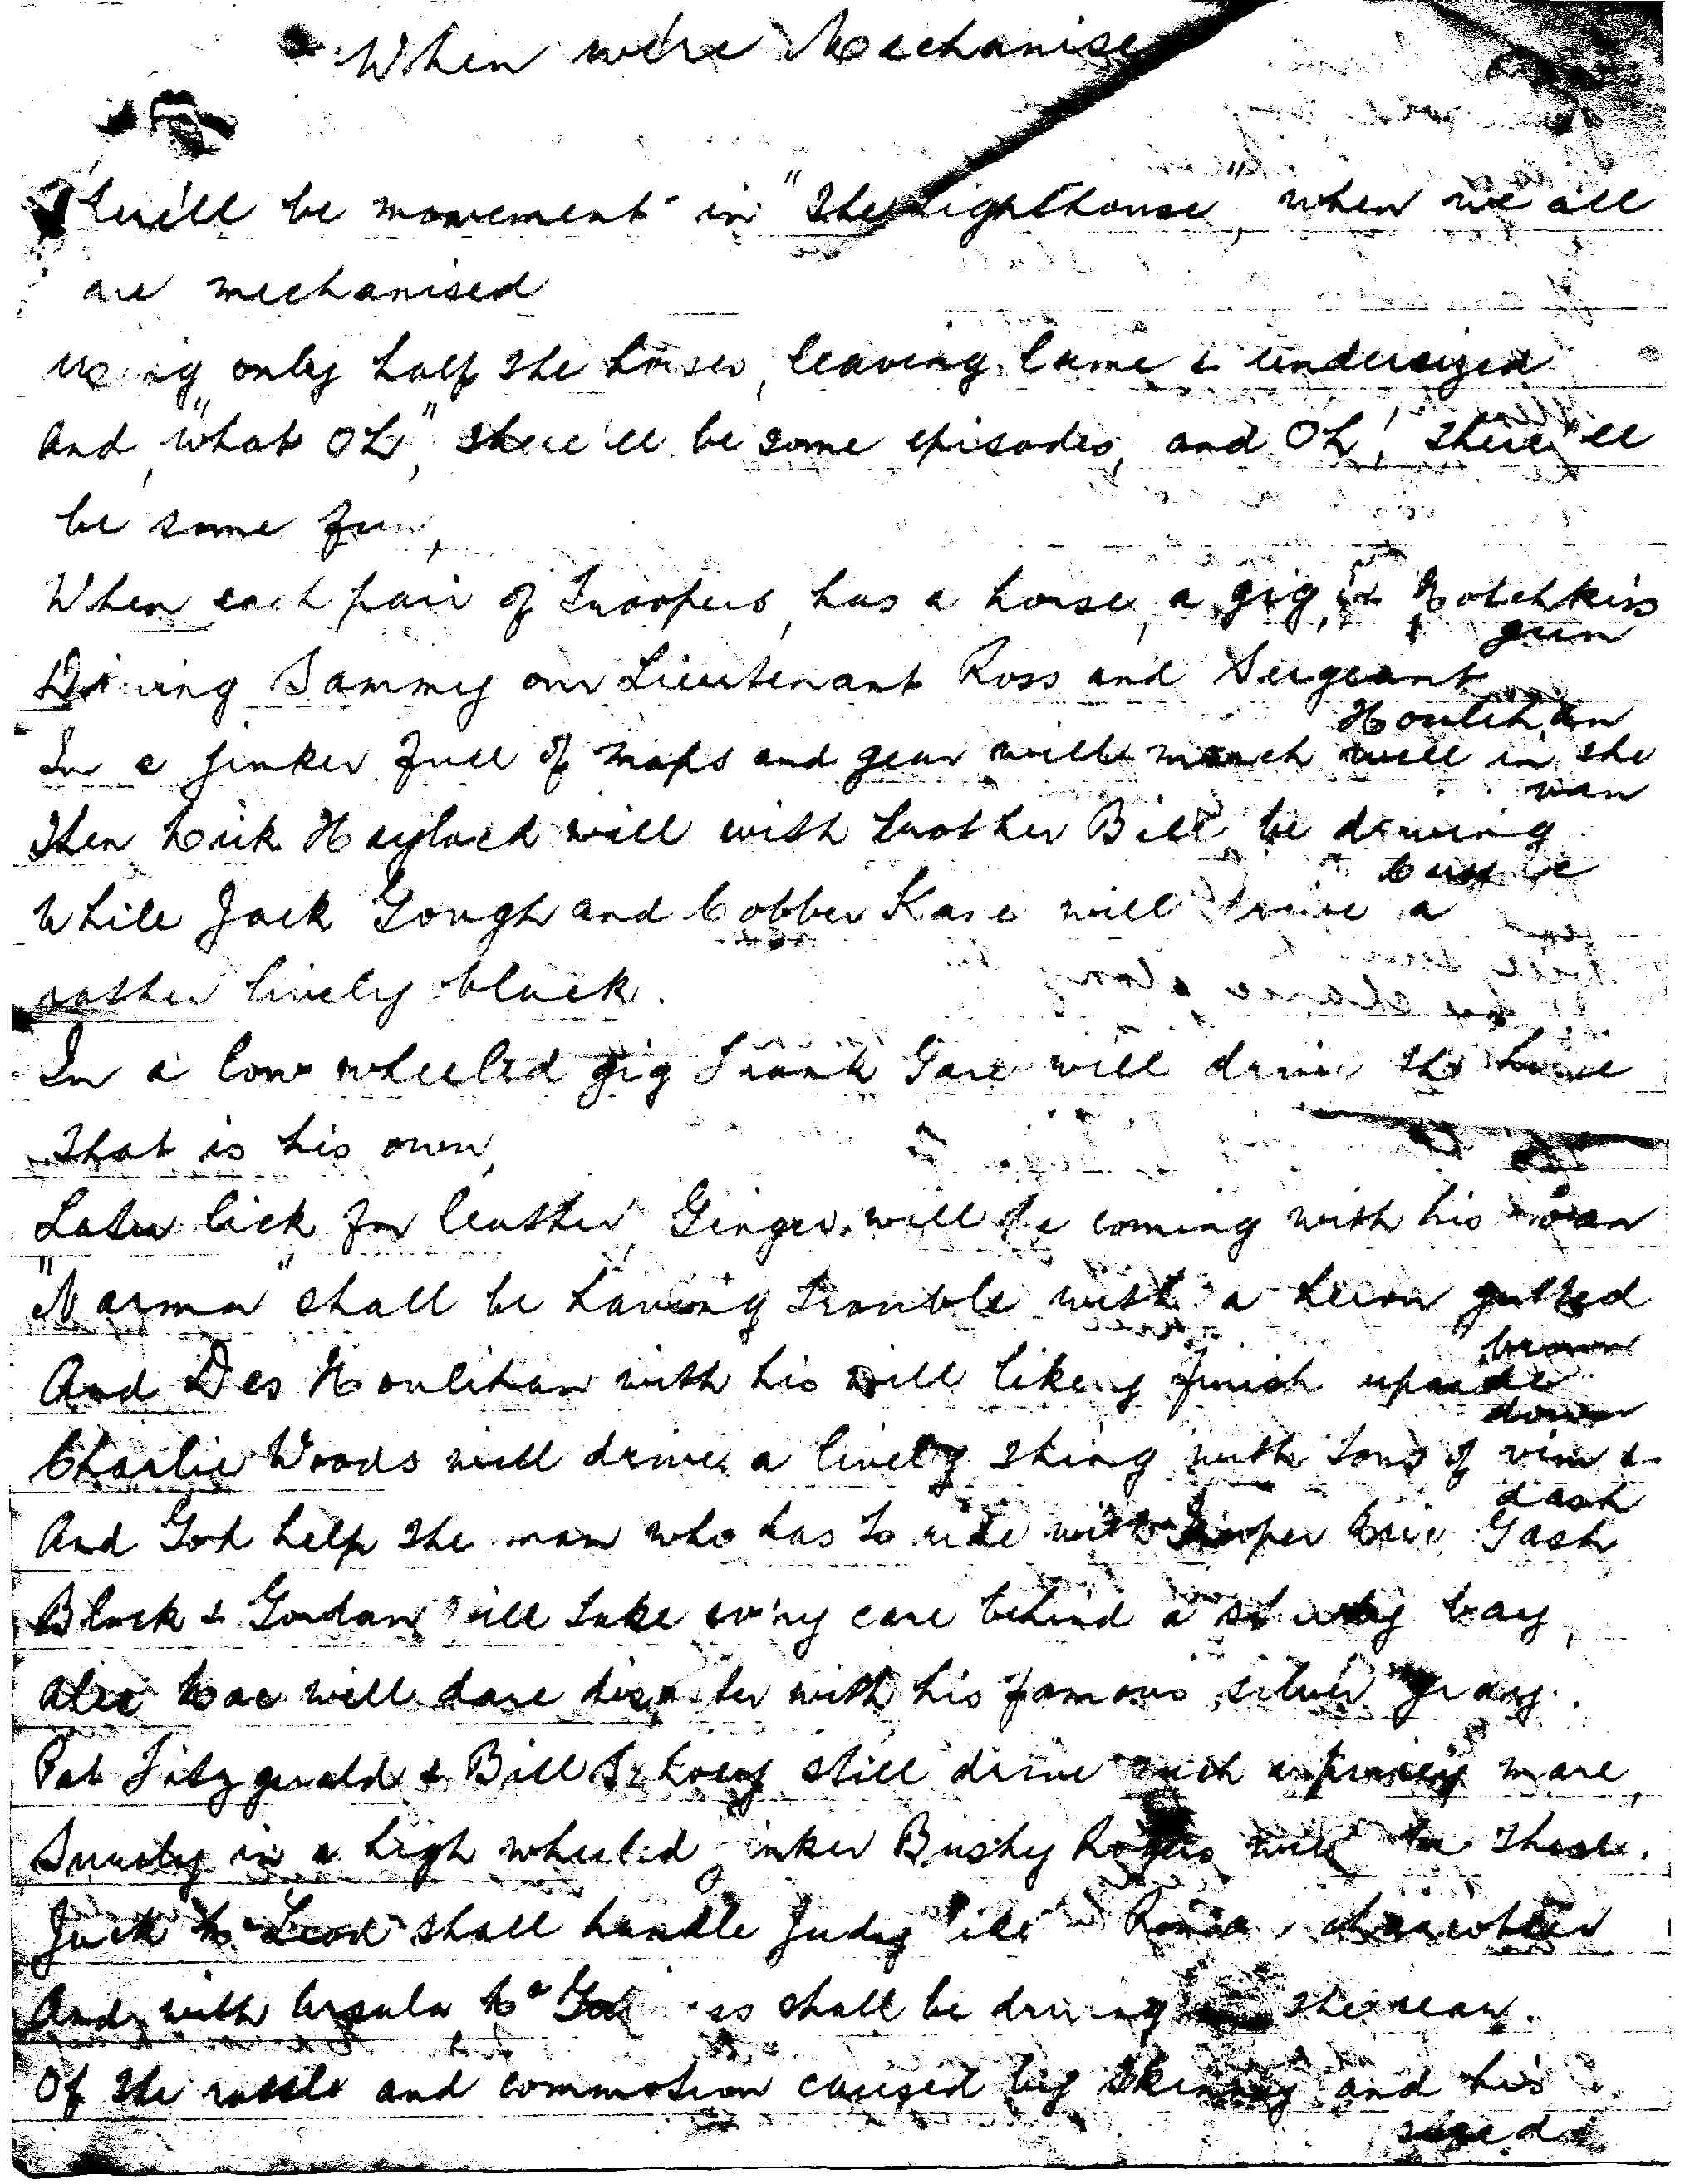 When we're Mechanise
be movement in "The Lighthouse", when we all
are mechanised
only half the horses, leaving lame & undersized
And, "what Oh", there'll be some episodes, and Oh! there'll
be some fun,
When each pair of Troopers, has a horse, a gig, & Hotchkiss
gun
Driving Sammy our Lieutenant Ross and Sergeant
Houlihan
In a jinker full of maps and gear will march well in the
van
Then Haylock will with brother Bill be driving
While Jack Gough and Cobber Kase will drive a
rather lively black.
In a low wheeled gig Frank Gare will drive the horse
that is his own,
Later lick for leather, Ginger will be coming with his roan
"Narma" shall be having trouble with a heron gutted
brown
And Des Houlihan with his will likely finish upside
down
Charlie Woods will drive a lively thing with tons of vim &
dash
And God help the man who has to ride with Trooper Eric Gash
Black & Gordon will take ev'ry care behind a sturdy bay,
Alec Mac will dare disaster with his famous silver gray.
Pat Fitzgerald & Bill still drive mare,
in a high wheeled jinker Bushy Rogers will be there.
Jack McLeod shall handle Judy like Roman charioteer
And with Ursula shall be driving the rear.
Of the rattle and commotion caused by Skinny and his
steed